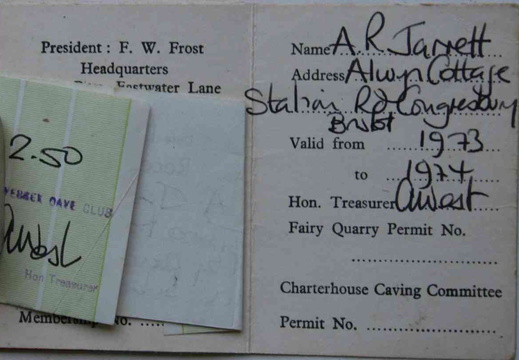 President : F. W. Frost
Headquarters
Eastwater Lane
2.50
CAVE CLUB
AWest
Hon Treasurer
Membership No. ....
Name A R Jarrett
Address Alwyn Cottage
Station Rd Congresbury
Bristol
Valid from 1973
to 1974
Hon. Treasurer AWest
Fairy Quarry Permit No.
Charterhouse Caving Committee
Permit No. ....................